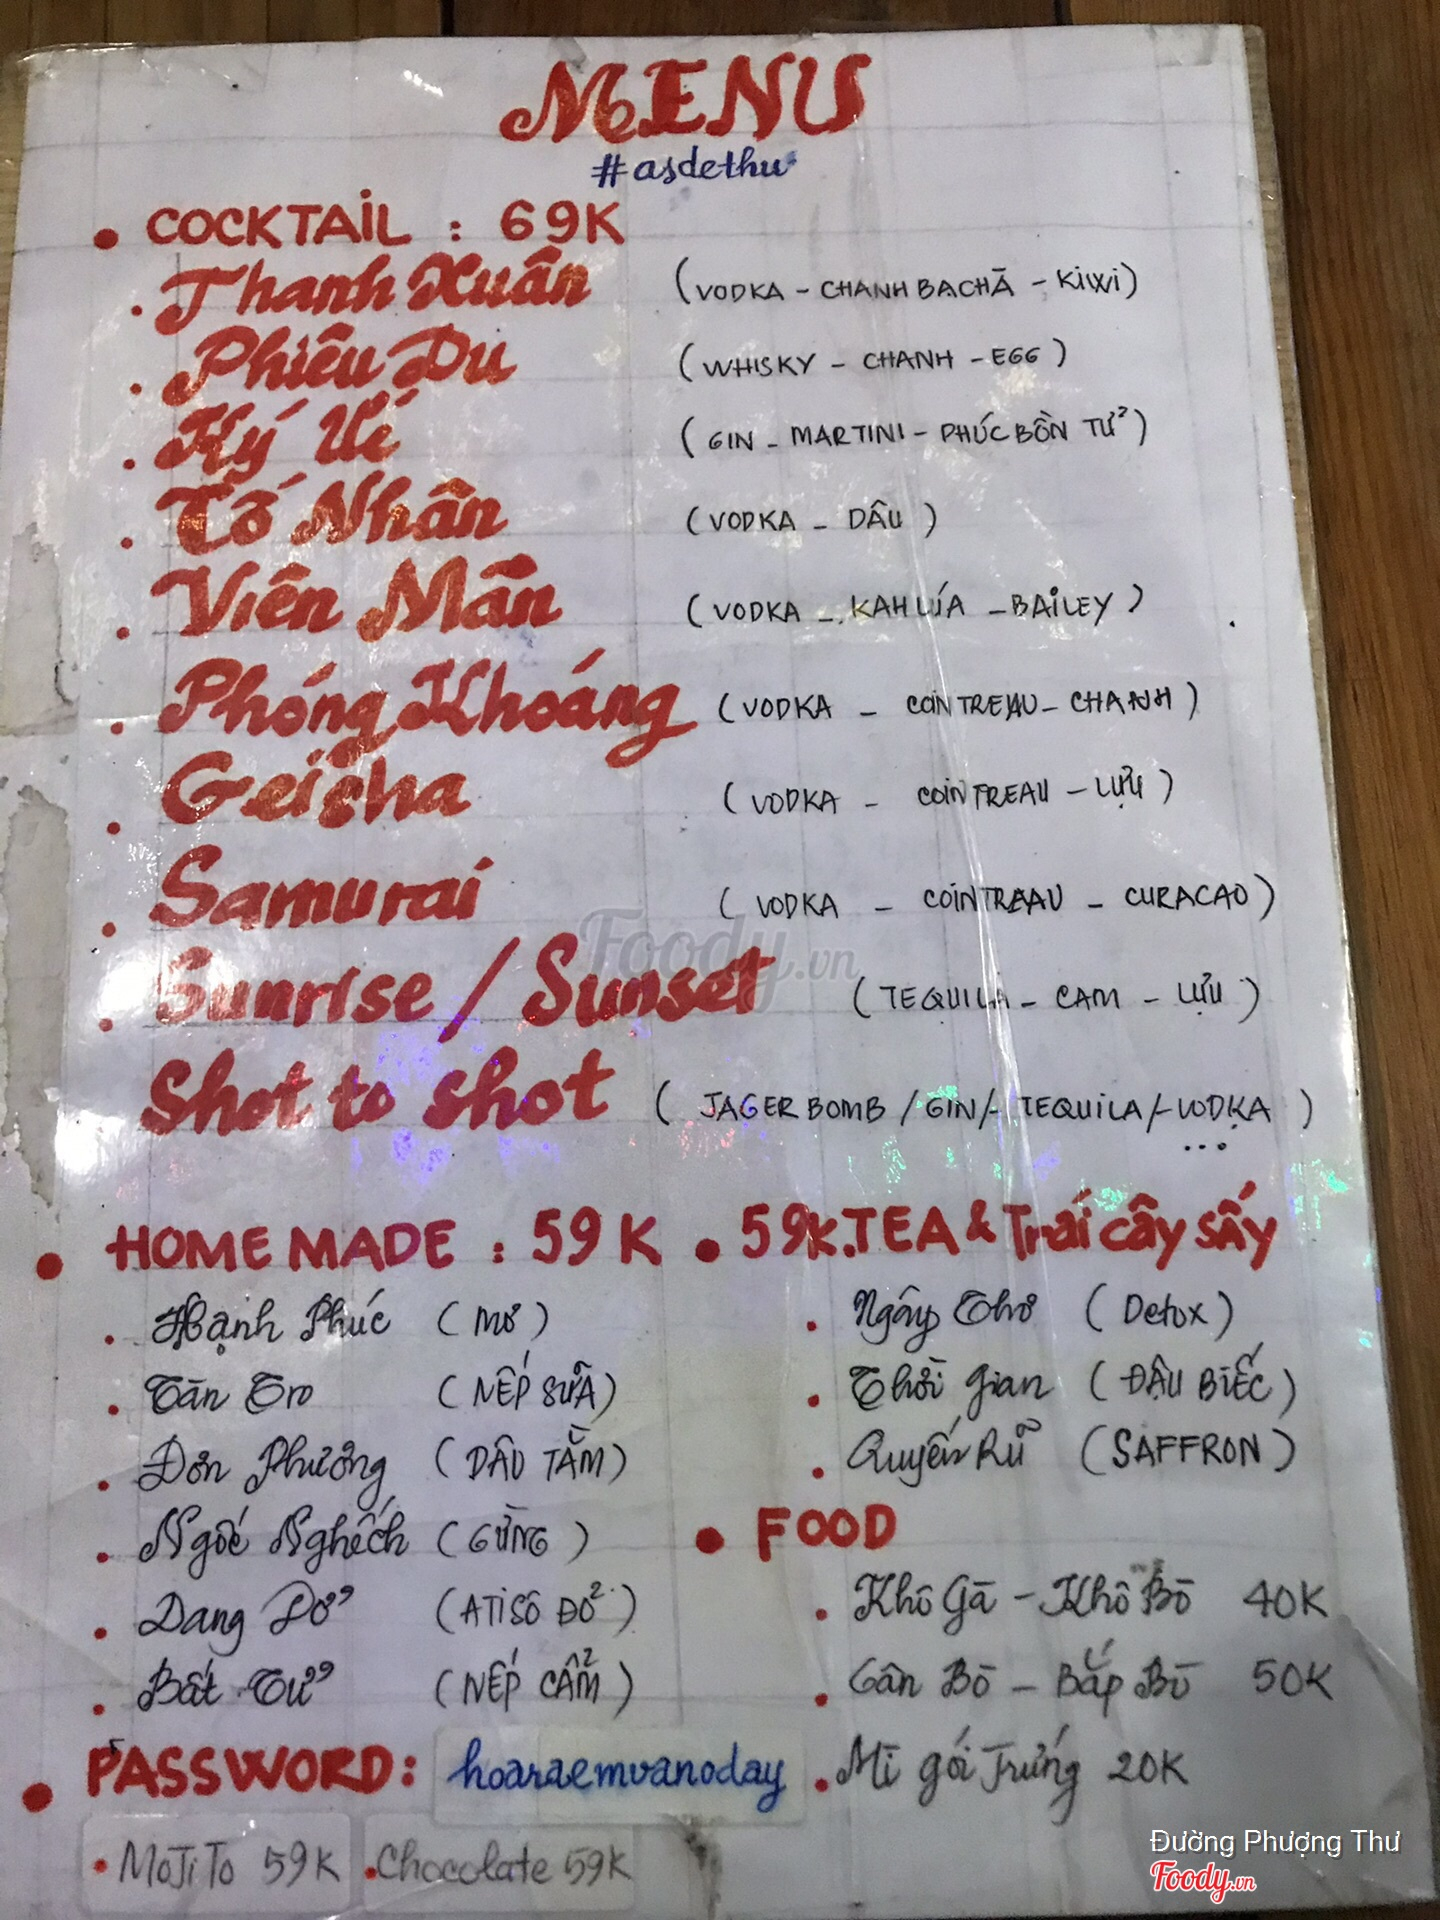 MENU
#asdethu
• COCKTAIL : 69K
. Thanh Xuân (VODKA - CHANH BACHÀ - KiWi)
. Phiêu Du (WHISKY - CHANH - EGG)
. Ký Ué (GIN - MARTINI - PHÚC BỒN TỬ)
. Tố Nhân (VODKA - DÂU)
. Viên Mãn (VODKA - KAHLÚA - BAiLEY)
. Phóng Khoáng (VODKA - COiNTREAU - CHANH)
. Geisha (VODKA - COiNTREAU - LỰU)
. Samurai (VODKA - COiNTREAU - CURACAO)
. Sunrise / Sunset (TEQUILA - CAM - LỰU)
Shot to shot (JAGER BOMB / GIN / TEQUiLA / VODKA ...)
• HOME MADE : 59K
. Hạnh Phúc (MƠ)
. Tàn Tro (NẾP SỮA)
. Đơn Phương (DÂU TẰM)
. Ngốc Nghếch (GỪNG)
. Dang Dở (ATiSÔ ĐỎ)
. Bất Tử (NẾP CẨM)
• 59K.TEA & Trái cây sấy
. Ngây Thơ (Detox)
. Thời gian (ĐẬU BiẾC)
. Quyến Rũ (SAFFRON)
• FOOD
. Khô Gà - Khô Bò 40K
. Gân Bò - Bắp Bò 50K
. Mì gói Trứng 20K
• PASSWORD: hoaraemvanoday
• MOJiTO 59K • Chocolate 59K
Foody.vn
Đường Phượng Thư
Foody.vn